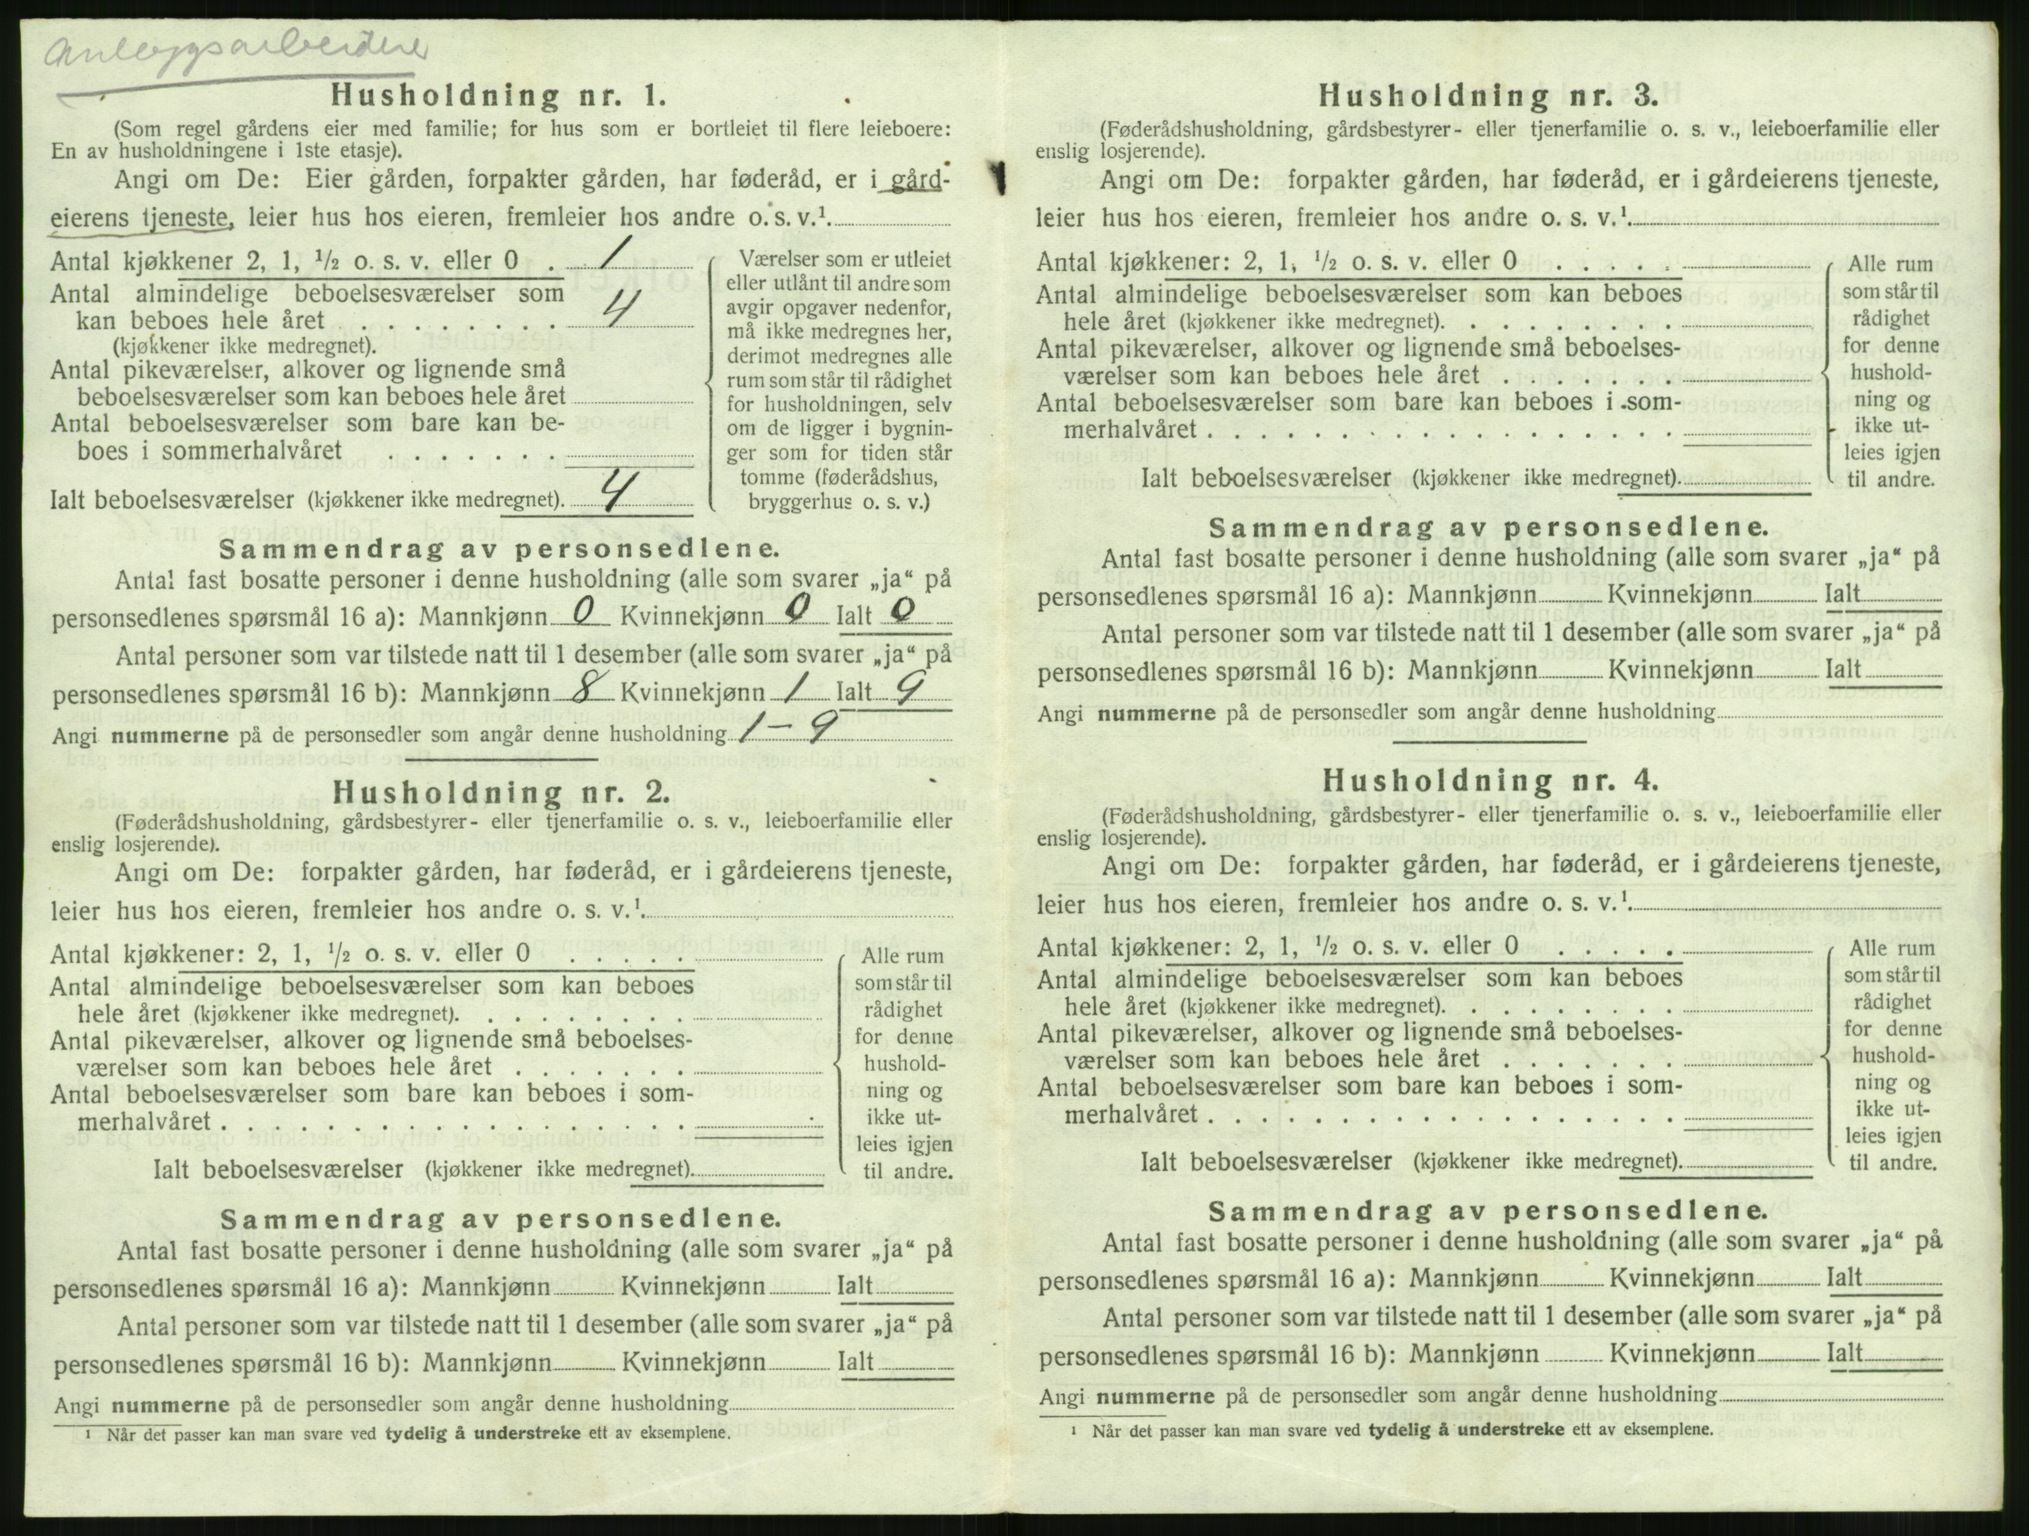 Anleggsarbeidere
Husholdning nr. 1.
(Som regel gårdens eier med familie; for hus som er bortleiet til flere leieboere:
En av husholdningene i 1ste etasje).
Angi om De: Eier gården, forpakter gården, har føderåd, er i gård-
eierens tjeneste, leier hus hos eieren, fremleier hos andre o. s. v.¹.
Antal kjøkkener 2, 1, ½ o. s. v. eller 0 . 1
Antal almindelige beboelsesværelser som
kan beboes hele året . . . . . . . . 4
(kjøkkener ikke medregnet).
Antal pikeværelser, alkover og lignende små
beboelsesværelser som kan beboes hele året
Antal beboelsesværelser som bare kan be-
boes i sommerhalvåret . . . . . . .
Ialt beboelsesværelser (kjøkkener ikke medregnet). 4
Værelser som er utleiet
eller utlånt til andre som
avgir opgaver nedenfor,
må ikke medregnes her,
derimot medregnes alle
rum som står til rådighet
for husholdningen, selv
om de ligger i bygnin-
ger som for tiden står
tomme (føderådshus,
bryggerhus o. s. v.)
Sammendrag av personsedlene.
Antal fast bosatte personer i denne husholdning (alle som svarer „ja“ på
personsedlenes spørsmål 16 a): Mannkjønn 0 Kvinnekjønn 0 Ialt 0
Antal personer som var tilstede natt til 1 desember (alle som svarer „ja“ på
personsedlenes spørsmål 16 b): Mannkjønn 8 Kvinnekjønn 1 Ialt 9
Angi nummerne på de personsedler som angår denne husholdning 1 - 9
Husholdning nr. 2.
(Føderådshusholdning, gårdsbestyrer- eller tjenerfamilie o. s. v., leieboerfamilie eller
enslig losjerende).
Angi om De: forpakter gården, har føderåd, er i gårdeierens tjeneste,
leier hus hos eieren, fremleier hos andre o. s. v.¹.
Antal kjøkkener: 2, 1, ½ o. s. v. eller 0 . . . . .
Antal almindelige beboelsesværelser som kan beboes
hele året (kjøkkener ikke medregnet). . . . . . . . .
Antal pikeværelser, alkover og lignende små beboelses-
værelser som kan beboes hele året . . . . . . .
Antal beboelsesværelser som bare kan beboes i som-
merhalvåret . . . . . . . . . . . . . . . . . .
Ialt beboelsesværelser (kjøkkener ikke medregnet).
Alle rum
som står til
rådighet
for denne
hushold-
ning og
ikke ut-
leies igjen
til andre.
Sammendrag av personsedlene.
Antal fast bosatte personer i denne husholdning (alle som svarer „ja“ på
personsedlenes spørsmål 16 a): Mannkjønn Kvinnekjønn Ialt
Antal personer som var tilstede natt til 1 desember (alle som svarer „ja“ på
personsedlenes spørsmål 16 b): Mannkjønn Kvinnekjønn Ialt
Angi nummerne på de personsedler som angår denne husholdning
¹ Når det passer kan man svare ved tydelig å understreke ett av eksemplene.
Husholdning nr. 3.
(Føderådshusholdning, gårdsbestyrer- eller tjenerfamilie o. s. v., leieboerfamilie eller
enslig losjerende).
Angi om De: forpakter gården, har føderåd, er i gårdeierens tjeneste,
leier hus hos eieren, fremleier hos andre o. s. v.¹.
Antal kjøkkener: 2, 1, ½ o. s. v. eller 0 . . . . .
Antal almindelige beboelsesværelser som kan beboes
hele året (kjøkkener ikke medregnet). . . . . . . . .
Antal pikeværelser, alkover og lignende små beboelses-
værelser som kan beboes hele året . . . . . . .
Antal beboelsesværelser som bare kan beboes i som-
merhalvåret . . . . . . . . . . . . . . . . . .
Ialt beboelsesværelser (kjøkkener ikke medregnet).
Alle rum
som står til
rådighet
for denne
hushold-
ning og
ikke ut-
leies igjen
til andre.
Sammendrag av personsedlene.
Antal fast bosatte personer i denne husholdning (alle som svarer „ja“ på
personsedlenes spørsmål 16 a): Mannkjønn Kvinnekjønn Ialt
Antal personer som var tilstede natt til 1 desember (alle som svarer „ja“ på
personsedlenes spørsmål 16 b): Mannkjønn Kvinnekjønn Ialt
Angi nummerne på de personsedler som angår denne husholdning
Husholdning nr. 4.
(Føderådshusholdning, gårdsbestyrer- eller tjenerfamilie o. s. v., leieboerfamilie eller
enslig losjerende).
Angi om De: forpakter gården, har føderåd, er i gårdeierens tjeneste,
leier hus hos eieren, fremleier hos andre o. s. v.¹.
Antal kjøkkener: 2, 1, ½ o. s. v. eller 0 . . . . .
Antal almindelige beboelsesværelser som kan beboes
hele året (kjøkkener ikke medregnet). . . . . . . . .
Antal pikeværelser, alkover og lignende små beboelses-
værelser som kan beboes hele året . . . . . . .
Antal beboelsesværelser som bare kan beboes i som-
merhalvåret . . . . . . . . . . . . . . . . . .
Ialt beboelsesværelser (kjøkkener ikke medregnet).
Alle rum
som står til
rådighet
for denne
hushold-
ning og
ikke ut-
leies igjen
til andre.
Sammendrag av personsedlene.
Antal fast bosatte personer i denne husholdning (alle som svarer „ja“ på
personsedlenes spørsmål 16 a): Mannkjønn Kvinnekjønn Ialt
Antal personer som var tilstede natt til 1 desember (alle som svarer „ja“ på
personsedlenes spørsmål 16 b): Mannkjønn Kvinnekjønn Ialt
Angi nummerne på de personsedler som angår denne husholdning
¹ Når det passer kan man svare ved tydelig å understreke ett av eksemplene.